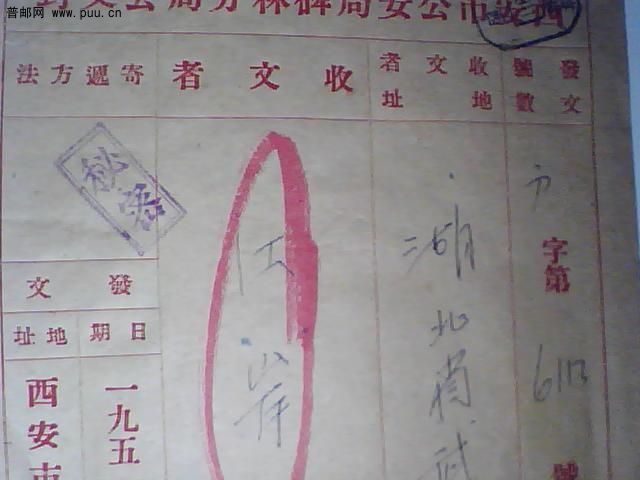 普邮网
www.puu.cn
西安市公安局碑林分局公文封
發文號數
收文者地址
收文者
寄遞方法
字第
號
湖北省武
江岸
秘密
發文
日期
地址
一九五
西安市